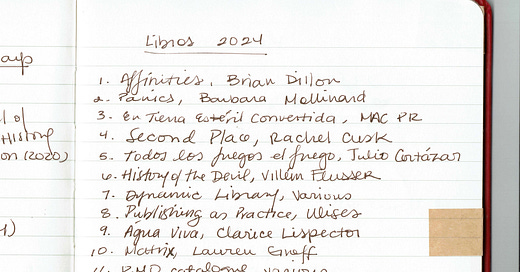 Libros 2024
1. Affinities, Brian Dillon
2. Panics, Barbara Mollinard
3. En Tierra Estéril Convertida, MAC PR
4. Second Place, Rachel Cusk
5. Todos los fuegos el fuego, Julio Cortázar
6. History of the Devil, Villem Flusser
7. Dynamic Library, Various
8. Publishing as Practice, Ulises
9. Agua Viva, Clarice Lispector
10. Matrix, Lauren Groff
of
History
on (2020)